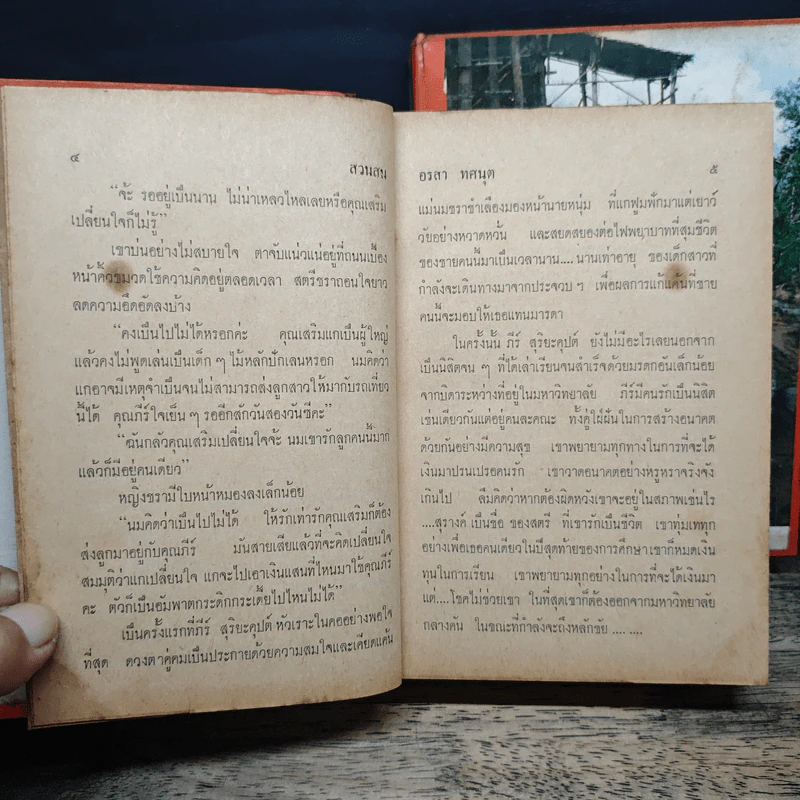 ๔ สวนสน
“จ้ะ รออยู่เป็นนาน ไม่น่าเหลวไหลเลยหรือคุณเสริม
เปลี่ยนใจก็ไม่รู้”
เขาบ่นอย่างไม่สบายใจ ตาจับแน่วแน่อยู่ที่ถนนเบื้อง
หน้าคิ้วขมวดใช้ความคิดอยู่ตลอดเวลา สตรีชราถอนใจยาว
ลดความอึดอัดลงบ้าง
“คงเป็นไปไม่ได้หรอกค่ะ คุณเสริมแกเป็นผู้ใหญ่
แล้วคงไม่พูดเล่นเป็นเด็ก ๆ ไม้หลักปักเลนหรอก นมคิดว่า
แกอาจมีเหตุจำเป็นจนไม่สามารถส่งลูกสาวให้มากับรถเที่ยว
นี้ได้ คุณภีร์ใจเย็น ๆ รออีกสักวันสองวันซีคะ”
“ฉันกลัวคุณเสริมเปลี่ยนใจจ้ะ นมเขารักลูกคนนี้มาก
แล้วก็มีอยู่คนเดียว”
หญิงชรามีใบหน้าหมองลงเล็กน้อย
“นมคิดว่าเป็นไปไม่ได้ ให้รักเท่ารักคุณเสริมก็ต้อง
ส่งลูกมาอยู่กับคุณภีร์ มันสายเสียแล้วที่จะคิดเปลี่ยนใจ
สมมุติว่าแกเปลี่ยนใจ แกจะไปเอาเงินแสนที่ไหนมาใช้คุณภีร์
คะ ตัวก็เป็นอัมพาตกระดิกกระเดี้ยไปไหนไม่ได้”
เป็นครั้งแรกที่ภีร์ สุริยะคุปต์ หัวเราะในคออย่างพอใจ
ที่สุด ดวงตาคู่คมเป็นประกายด้วยความสมใจและเคียดแค้น
อรสา ทศนุต ๕
แม่นมชราชำเลืองมองหน้านายหนุ่ม ที่แกฟูมฟักมาแต่เยาว์
วัยอย่างหวาดหวั่น และสยดสยองต่อไฟพยาบาทที่สุมชีวิต
ของชายคนนี้มาเป็นเวลานาน....นานเท่าอายุ ของเด็กสาวที่
กำลังจะเดินทางมาจากประจวบ ฯ เพื่อผลการแก้แค้นที่ชาย
คนนี้จะมอบให้เธอแทนมารดา
ในครั้งนั้น ภีร์ สุริยะคุปต์ ยังไม่มีอะไรเลยนอกจาก
เป็นนิสิตจน ๆ ที่ได้เล่าเรียนจนสำเร็จด้วยมรดกอันเล็กน้อย
จากบิดาระหว่างที่อยู่ในมหาวิทยาลัย ภีร์มีคนรักเป็นนิสิต
เช่นเดียวกันแต่อยู่คนละคณะ ทั้งคู่ใฝ่ฝันในการสร้างอนาคต
ด้วยกันอย่างมีความสุข เขาพยายามทุกทางในการที่จะได้
เงินมาปรนเปรอคนรัก เขาวาดอนาคตอย่างหรูหราจริงจัง
เกินไป ลืมคิดว่าหากต้องผิดหวังเขาจะอยู่ในสภาพเช่นไร
....สุรางค์ เป็นชื่อ ของสตรี ที่เขารักเป็นชีวิต เขาทุ่มเททุก
อย่างเพื่อเธอคนเดียวในปีสุดท้ายของการศึกษา เขาก็หมดเงิน
ทุนในการเรียน เขาพยายามทุกอย่างในการที่จะได้เงินมา
แต่....โชคไม่ช่วยเขา ในที่สุดเขาก็ต้องออกจากมหาวิทยาลัย
กลางคัน ในขณะที่กำลังจะถึงหลักชัย .... ....